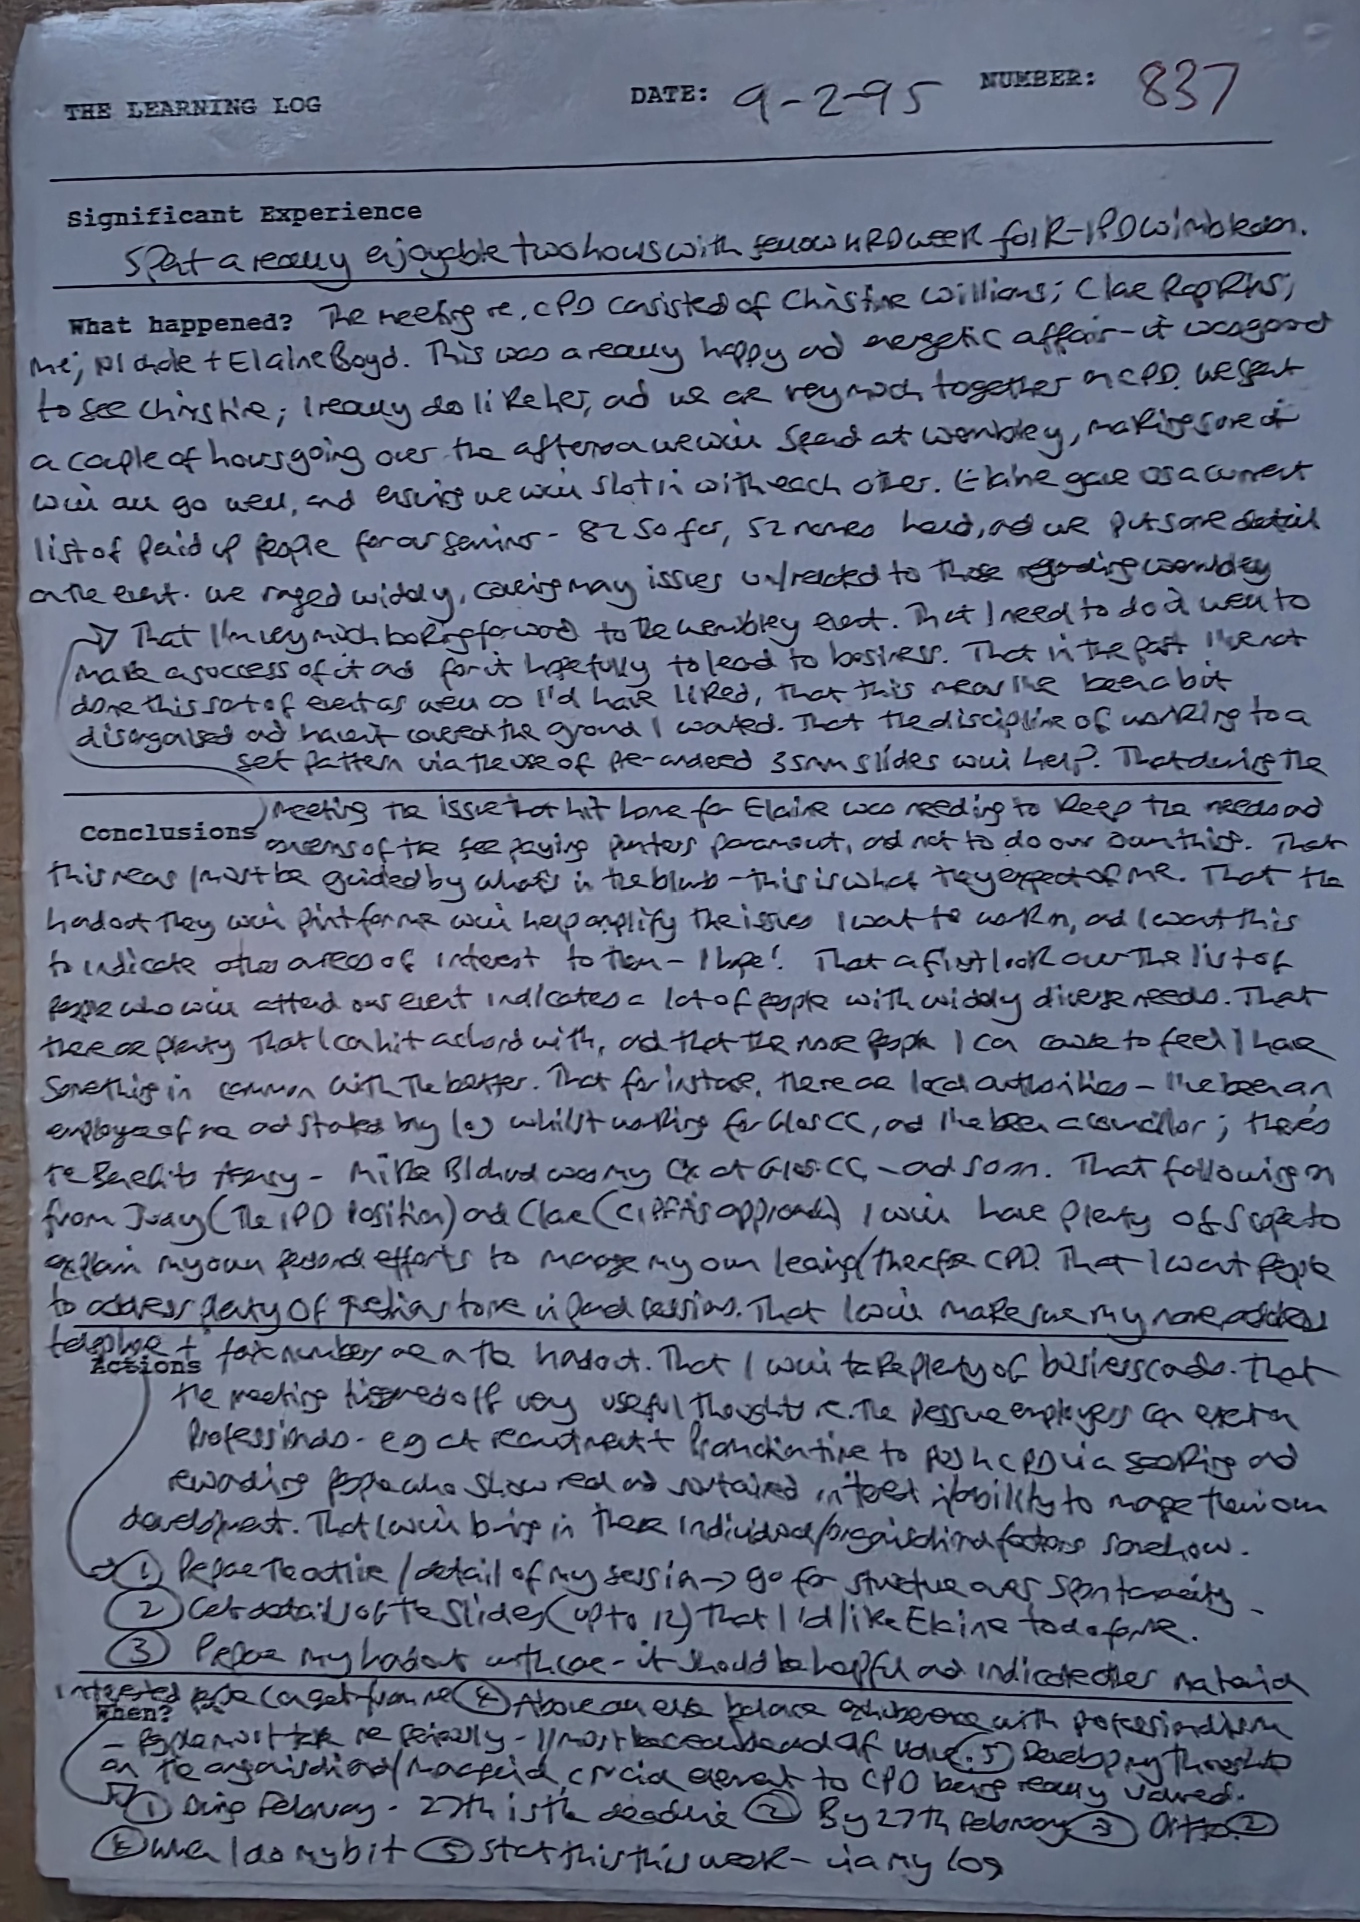 THE LEARNING LOG DATE: 9-2-95 NUMBER: 837
Significant Experience
Spent a really enjoyable two hours with fellow HRD week folk - IPD Wimbledon.
What happened? The meeting re. CPD consisted of Christine Williams; Clare
me; + Elaine Boyd. This was a really happy and energetic affair - it was good
to see Christine; I really do like her, and we are very much together on CPD. We spent
a couple of hours going over the afternoon we will spend at Wembley, making sure it
will all go well, and ensuring we will slot in with each other. Elaine gave us a current
list of paid up people for our seminar - 82 so far, 52 names heard, and we put some detail
on the event. We ranged widely, covering many issues un/related to those regarding Wembley
That I'm very much looking forward to the Wembley event. That I need to do it well to
make a success of it and for it hopefully to lead to business. That in the past I've not
done this sort of event as well as I'd have liked, that this means I've been a bit
disorganised and haven't covered the ground I wanted. That the discipline of working to a
set pattern via the use of pre-ordered 35mm slides will help. That during the
Conclusions meeting the issue that hit home for Elaine was needing to keep the needs and
concerns of the fee paying punters paramount, and not to do our own thing. That
this means I must be guided by what's in the blurb - this is what they expect of me. That the
handout they will print for me will help amplify the issues I want to work on, and I want this
to indicate other areas of interest to them - I hope! That a first look over the list of
people who will attend our event indicates a lot of people with widely diverse needs. That
there are plenty that I can hit a chord with, and that the more people I can cause to feel I have
something in common with the better. That for instance, there are local authorities - I've been an
employee of one and started my log whilst working for Glos CC, and I've been a councillor; there's
the Benefits Agency - Mike Bichard was my Cx at Glos. CC - and so on. That following on
from Judy (the IPD position) and Clare (CIPFA's approach) I will have plenty of scope to
explain my own personal efforts to manage my own learning/therefore CPD. That I want people
to address plenty of questions to me in panel sessions. That I will make sure my name, address
telephone + fax number are on the handout. That I will take plenty of business cards. That
Actions the meeting triggered off very useful thoughts re. the pressure employers can exert on
professionals - eg at recruitment + promotion time to push CPD via seeking and
rewarding people who show real and sustained interest in/ability to manage their own
development. That I will bring in these individual/organisational factors somehow.
① Prepare the outline/detail of my session → go for structure over spontaneity -
② Get details of the slides (up to 12) that I'd like Elaine to do for me.
③ Prepare my handout with care - it should be helpful and indicate other material
interested people can get from me ④ Above all else balance exhuberence with professionalism
When? - people must take me seriously - I must be and of value. ⑤ Develop my thoughts
on the organisational/managerial, crucial element to CPD being really valued.
① During February - 27th is the deadline ② By 27th February ③ Ditto ②
④ When I do my bit ⑤ Start this this week - via my log